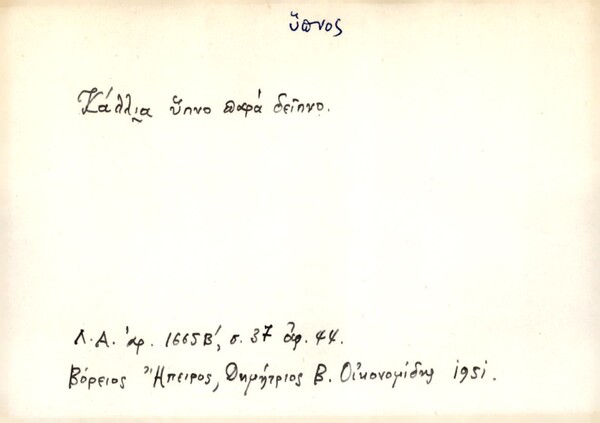 ὕπνος
Κάλλια ὕπνο παρά δεῖπνο.
Λ.Α. ἀρ. 1665Β', σ. 37 ἀρ. 44.
Βόρειος Ἤπειρος, Δημήτριος Β. Οἰκονομίδης 1951.